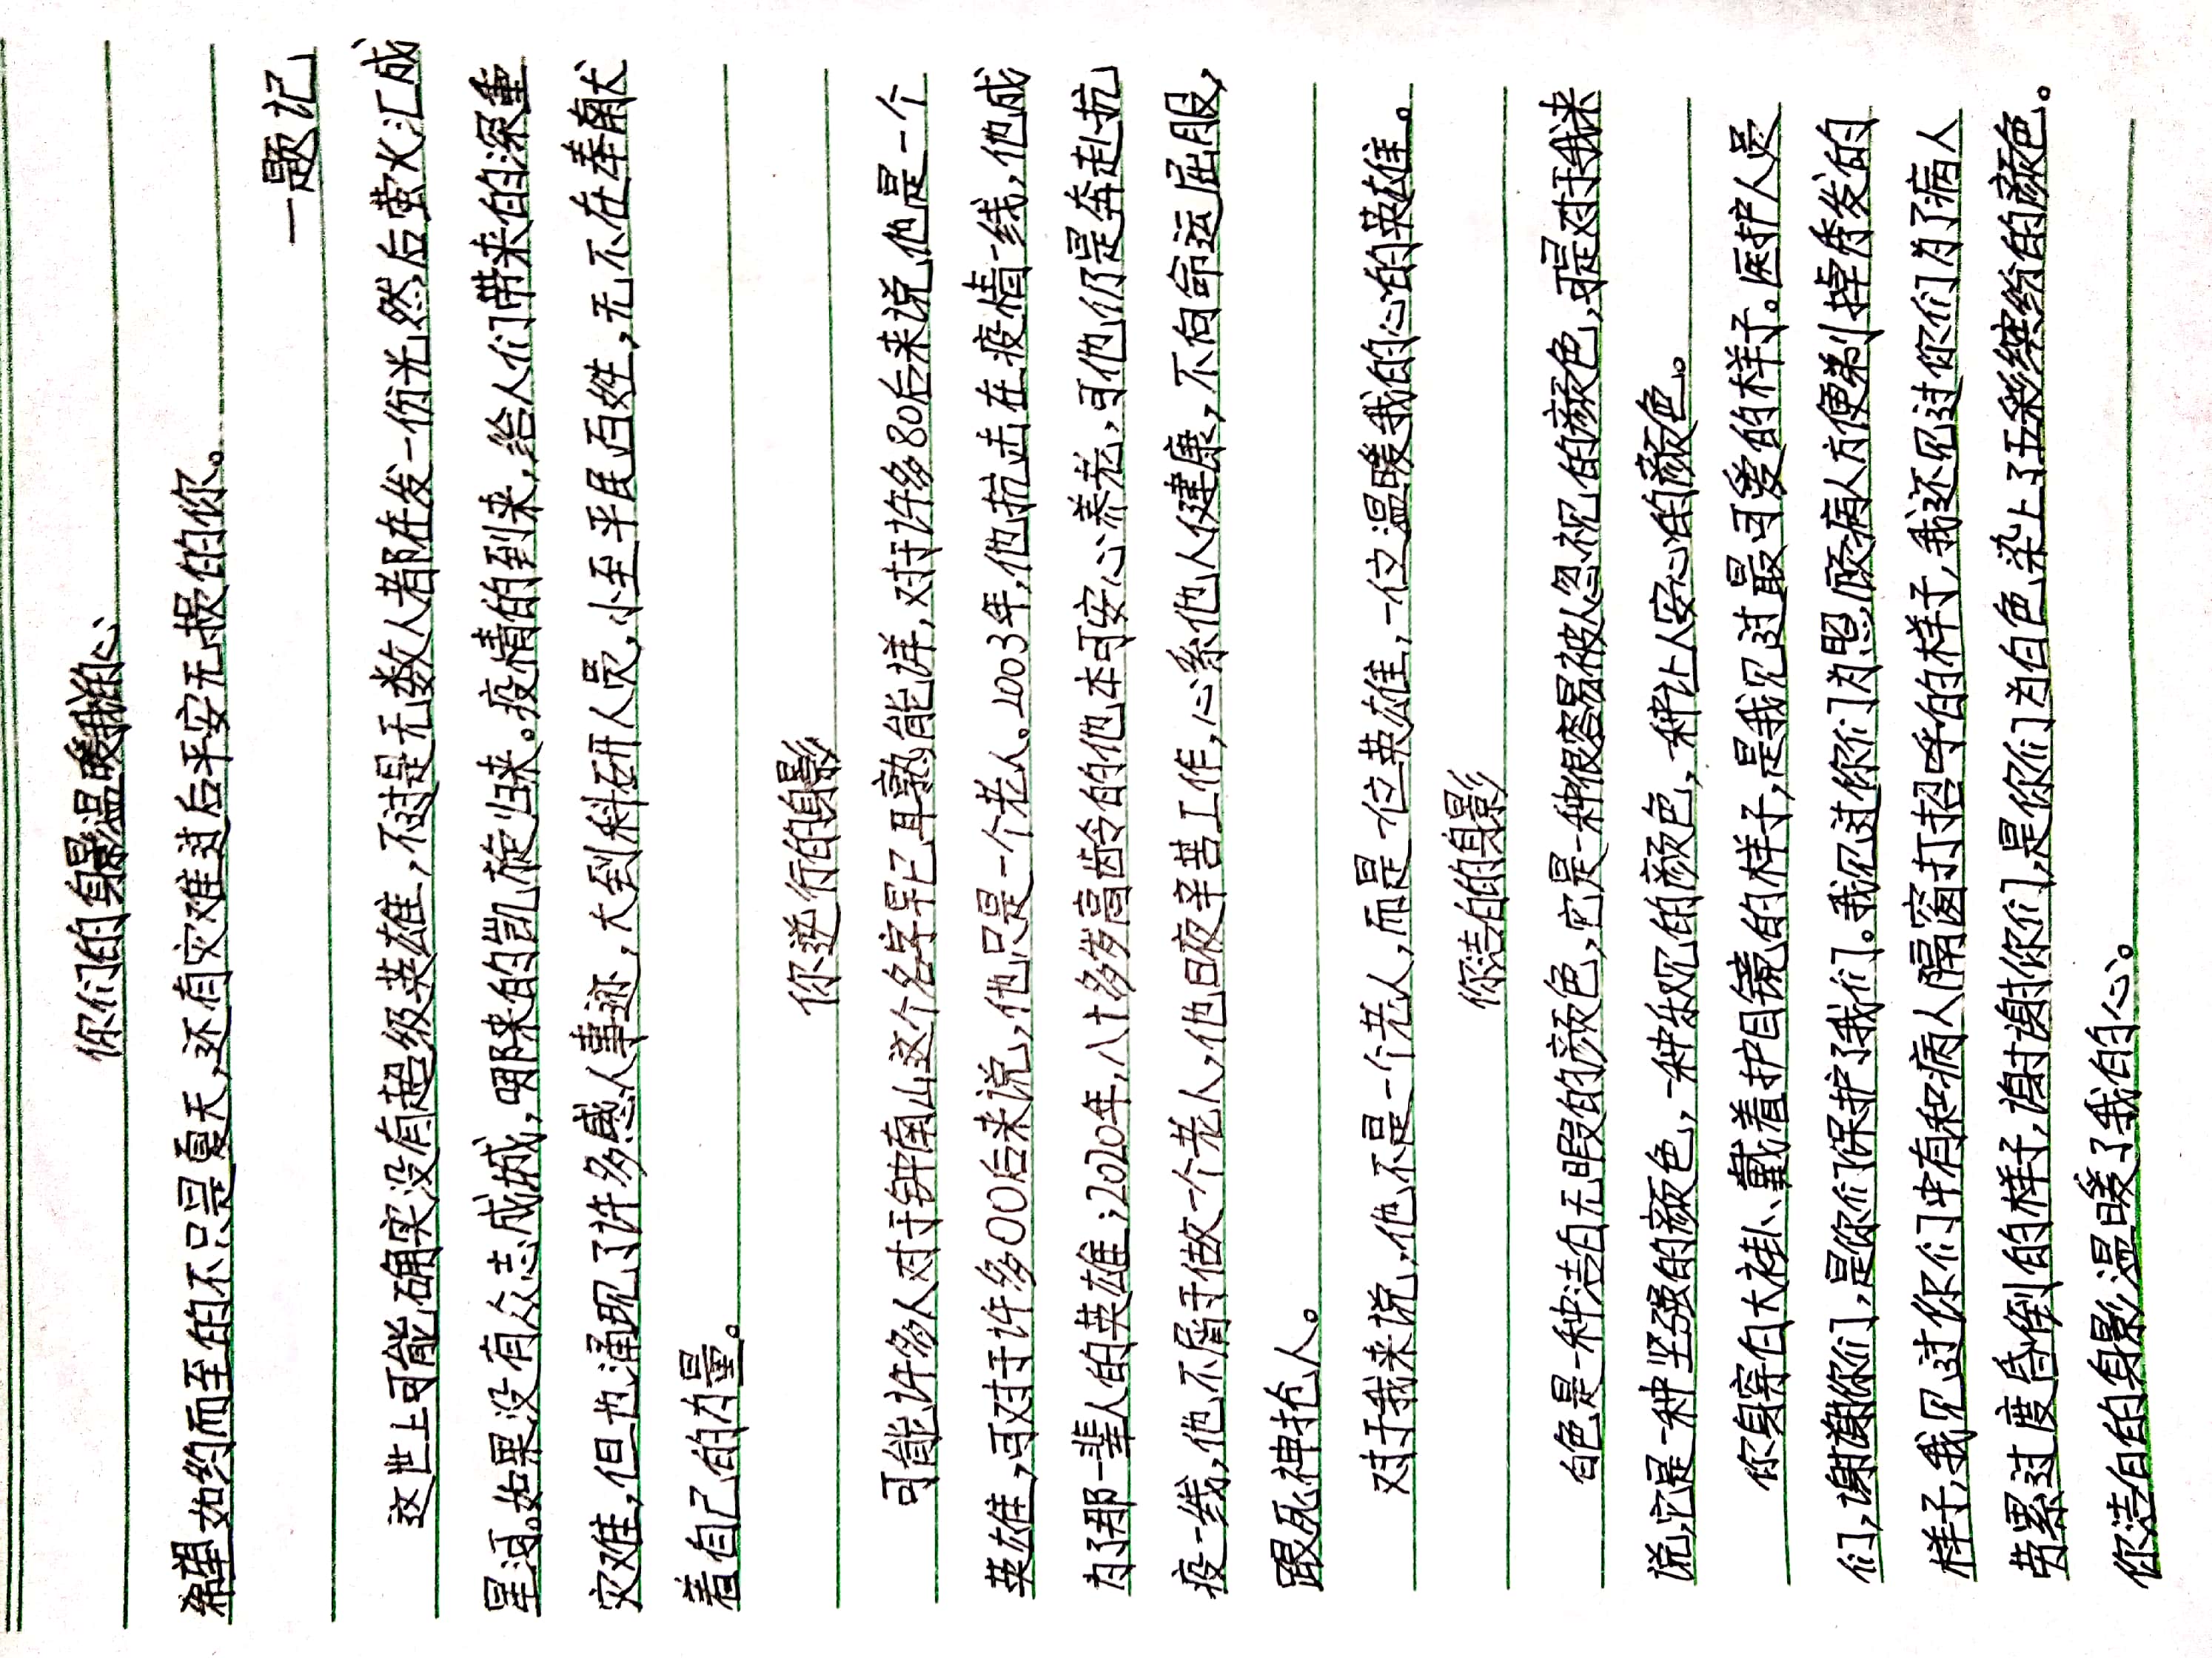 你们的身影温暖我的心
希望如约而至的不只是夏天,还有灾难过后平安无损的你。
一题记
这世上可能确实没有超级英雄,不过是无数人都在发一份光,然后萤火汇成
星河。如果没有众志成城,哪来的凯旋归来。疫情的到来,给人们带来的深重
灾难,但也涌现了许多感人事迹,大到科研人员,小至平民百姓,无不在奉献
着自己的力量。
你逆行的身影
可能许多人对于钟南山这个名字早已耳熟能详,对于许多80后来说,他是一个
英雄,可对于许多00后来说,他只是一个老人。2003年,他抗击在疫情一线,他成
为了那一辈人的英雄;2020年,八十多岁高龄的他本可安心养老,可他仍是奔赴抗
疫一线,他不屑于做一个老人,他日夜辛苦工作,心系他人健康,不向命运屈服,
跟死神抢人。
对于我来说,他不是一个老人,而是一位英雄,一位温暖我的心的英雄。
你洁白的身影
白色是一种洁白无暇的颜色,它是一种很容易被人忽视的颜色,可是对于我来
说,它是一种坚强的颜色,一种乐观的颜色,一种让人安心的颜色。
你身穿白大褂、戴着护目镜的样子,是我见过最可爱的样子。医护人员
们,谢谢你们,是你们保护了我们。我见过你们为照顾病人方便剃掉秀发的
样子,我见过你们中有和病人隔窗打招呼的样子,我还见过你们为了病人
劳累过度昏倒的样子,谢谢你们,是你们为白色染上了五彩缤纷的颜色。
你洁白的身影温暖了我的心。